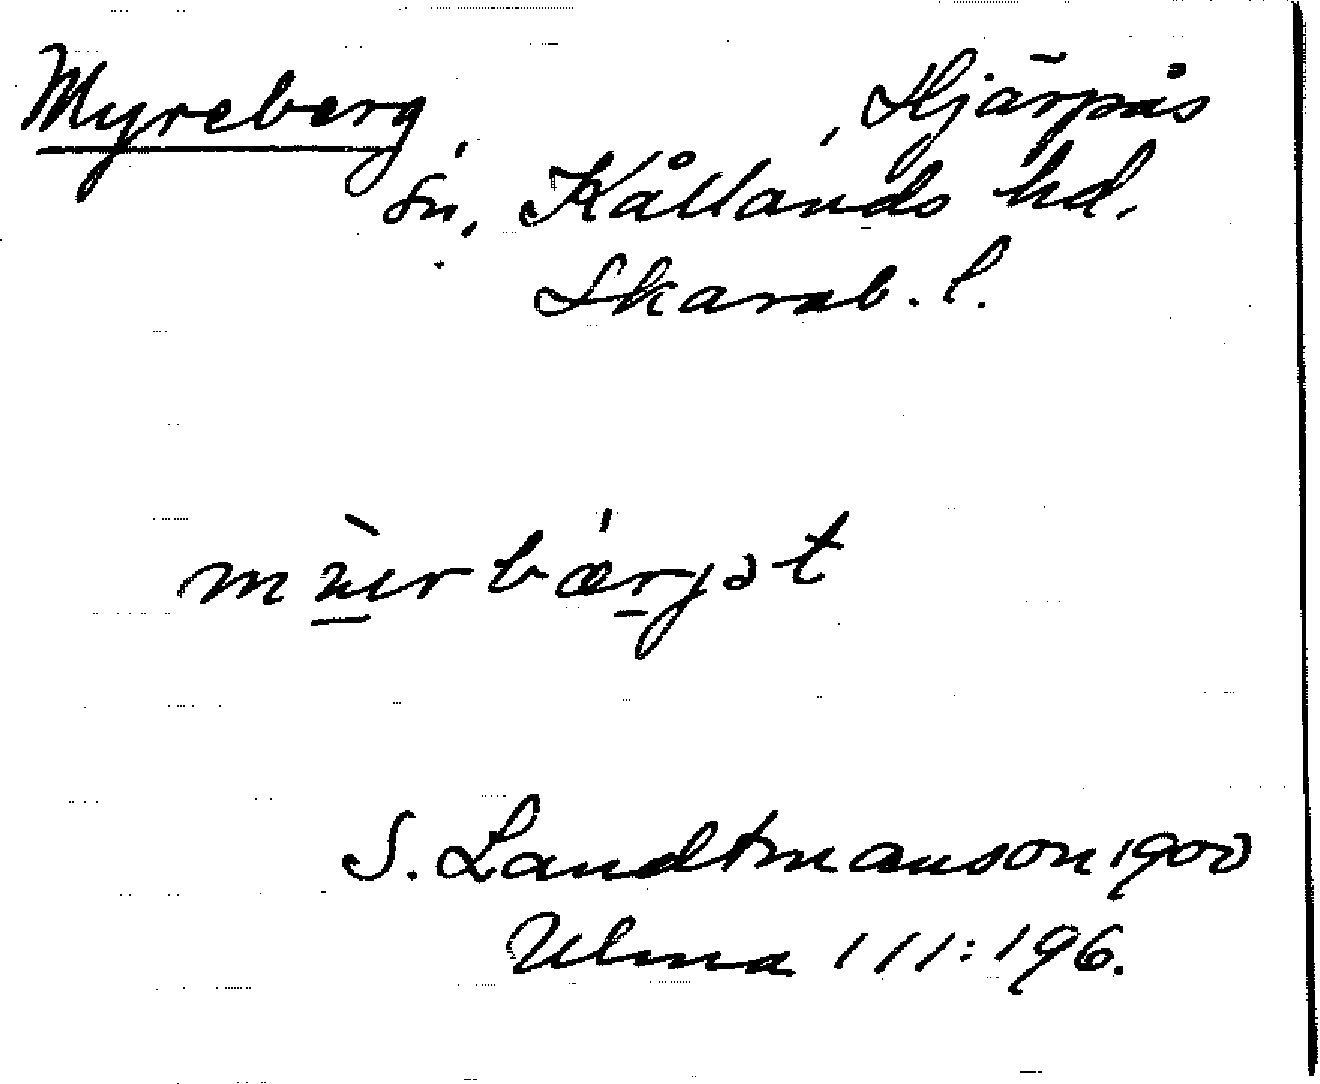 Myreberg, Hjärpås
sn, Kållands hd.
Skarab. l.
S. Landtmanson 1900
Ulma 111:196.